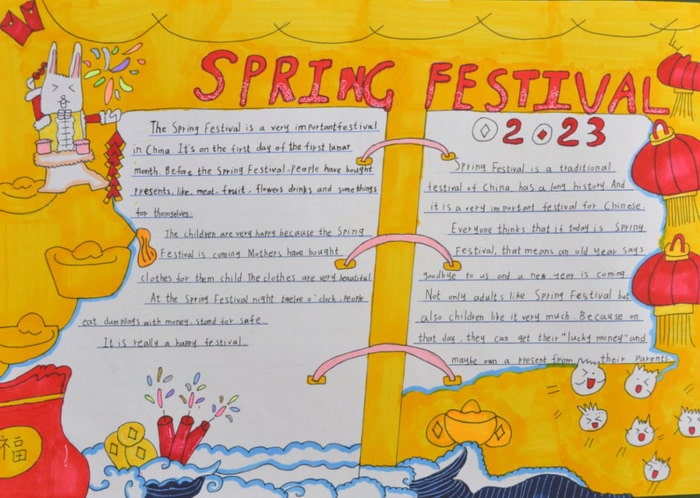 SPRING FESTIVAL
2023
The Spring Festival is a very importantfestival
in China. It's on the first day of the first lunar
month. Before the Spring Festival. people have bought
presents, like, meat. fruit. flowers drinks and somethings
for themselves.
The children are very happy because the Sping
Festival is coming Mothers have bought
clothes for them child The clothes are very beautiful
At the Spring Festival night twelve o'clock, people
eat dumplings with money. stand for safe
It is really a happy festival
Spring Festival is a traditional
festival of China has a long history. And
it is a very important festival for Chinese
Everyone thinks that if today is Spring
Festival, that means an old year says
goodbye to us and a new year is coming
Not only adults like Spring Festival but
also children like it very much. Because on
that day, they can get their "lucky money" and
maybe own a present from their parents
福